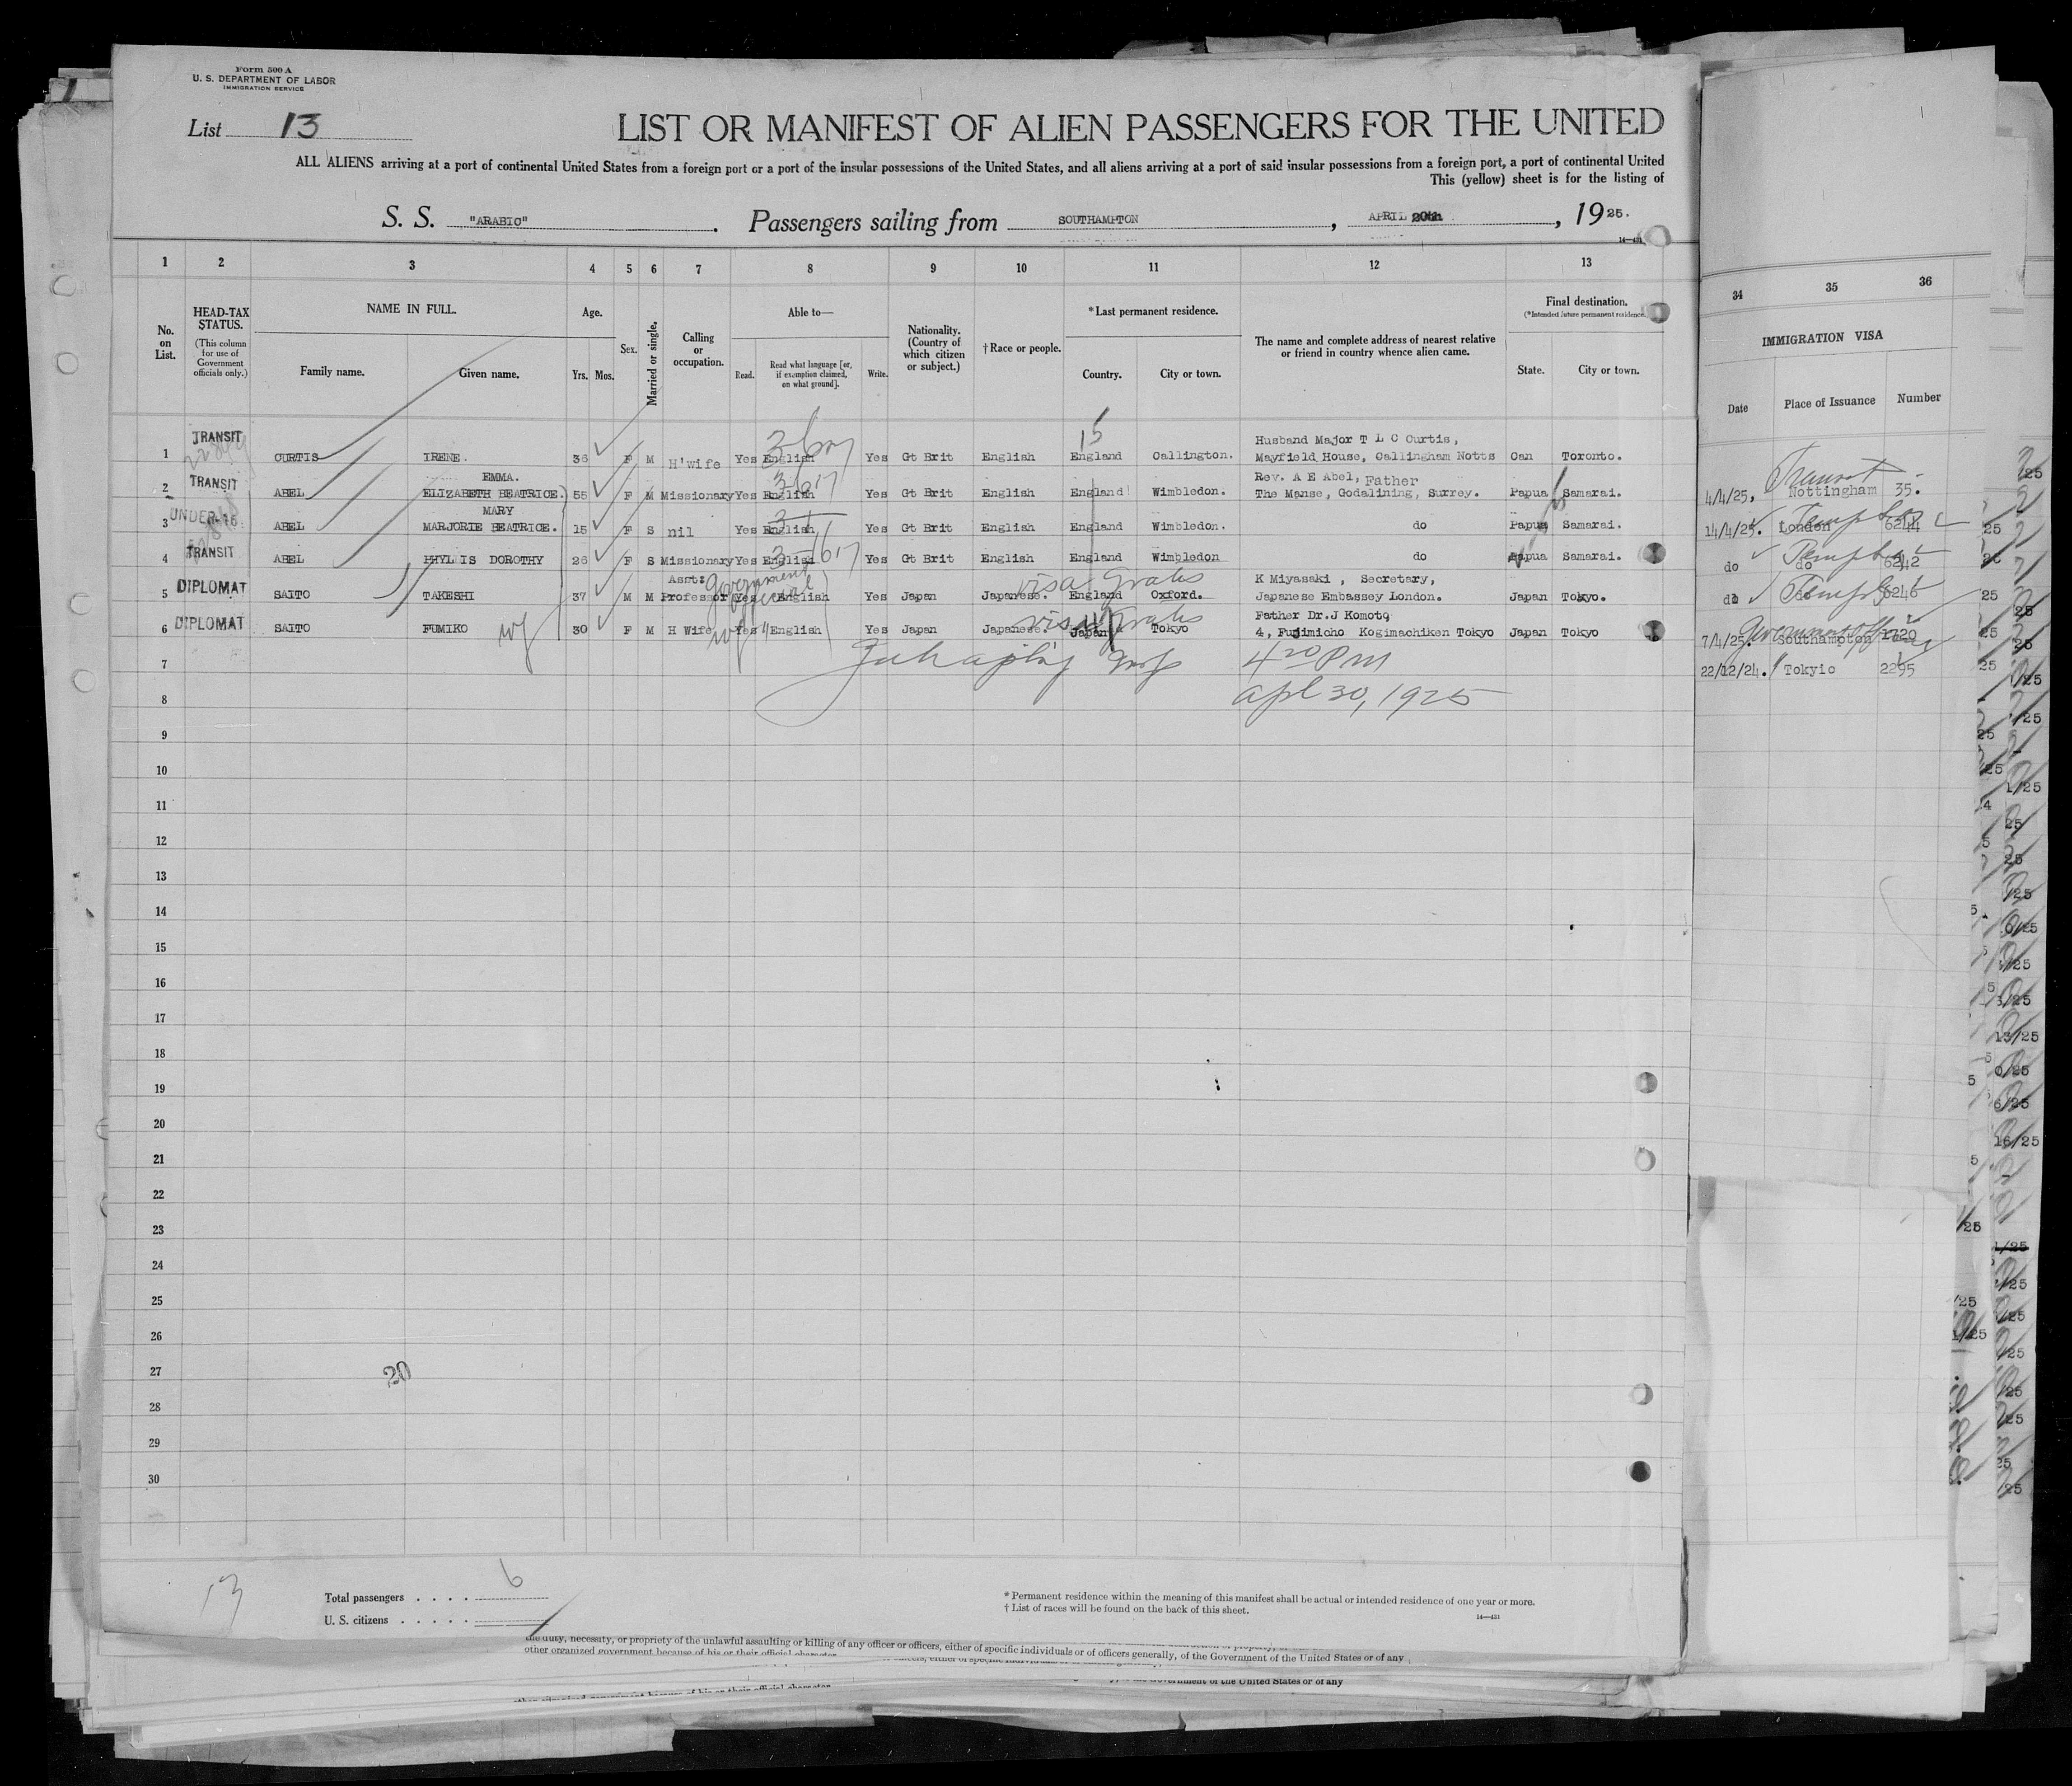 Form 500 A
U. S. DEPARTMENT OF LABOR
IMMIGRATION SERVICE
List 13
LIST OR MANIFEST OF ALIEN PASSENGERS FOR THE UNITED
ALL ALIENS arriving at a port of continental United States from a foreign port or a port of the insular possessions of the United States, and all aliens arriving at a port of said insular possessions from a foreign port, a port of continental United
This (yellow) sheet is for the listing of
S. S. "ARABIC" . Passengers sailing from SOUTHAMPTON , APRIL 20th , 1925.
14—431
1 2 3 4 5 6 7 8 9 10 11 12 13
No. on List.
HEAD-TAX STATUS.
(This column for use of Government officials only.)
NAME IN FULL.
Family name. Given name.
Age.
Yrs. Mos.
Sex.
Married or single.
Calling or occupation.
Able to—
Read. Read what language [or, if exemption claimed, on what ground]. Write.
Nationality. (Country of which citizen or subject.)
†Race or people.
*Last permanent residence.
Country. City or town.
The name and complete address of nearest relative or friend in country whence alien came.
Final destination.
(*Intended future permanent residence.)
State. City or town.
34 35 36
IMMIGRATION VISA
Date Place of Issuance Number
15
TRANSIT Husband Major T L C Curtis,
1 CURTIS IRENE. 36 F M H'wife Yes English Yes Gt Brit English England Callington. Mayfield House, Callingham Notts Can Toronto.
TRANSIT EMMA. Rev. A E Abel, Father
2 ABEL ELIZABETH BEATRICE. 55 F M Missionary Yes English Yes Gt Brit English England Wimbledon. The Manse, Godalining, Surrey. Papua Samarai.
UNDER 16 MARY
3 ABEL MARJORIE BEATRICE. 15 F S nil Yes English Yes Gt Brit English England Wimbledon. do Papua Samarai.
4 TRANSIT ABEL PHYLIS DOROTHY 26 F S Missionary Yes English Yes Gt Brit English England Wimbledon do Papua Samarai.
Asst: Government official visa gratis K Miyasaki , Secretary,
5 DIPLOMAT SAITO TAKESHI 37 M M Professor Yes English Yes Japan Japanese. England Oxford. Japanese Embassey London. Japan Tokyo.
visa gratis Father Dr.J Komoto
6 DIPLOMAT SAITO FUMIKO wf 30 F M H Wife wf Yes English Yes Japan Japanese. Japan Tokyo 4, Fujimicho Kogimachiken Tokyo Japan Tokyo
4/4/25, Transit Nottingham 35.
14/4/25. London 6244
do do 6242
do do 6246
7/4/25. Southampton 1720
22/12/24. " Tokyio 2295
7
4 20 PM
8
Apl 30, 1925
9
10
11
12
13
14
15
16
17
18
19
20
21
22
23
24
25
26
27
20
28
29
30
13
Total passengers . . . . 6
U. S. citizens . . . . .
* Permanent residence within the meaning of this manifest shall be actual or intended residence of one year or more.
† List of races will be found on the back of this sheet.
14—431
the duty, necessity, or propriety of the unlawful assaulting or killing of any officer or officers, either of specific individuals or of officers generally, of the Government of the United States or of any
other organized government because of his or their official character